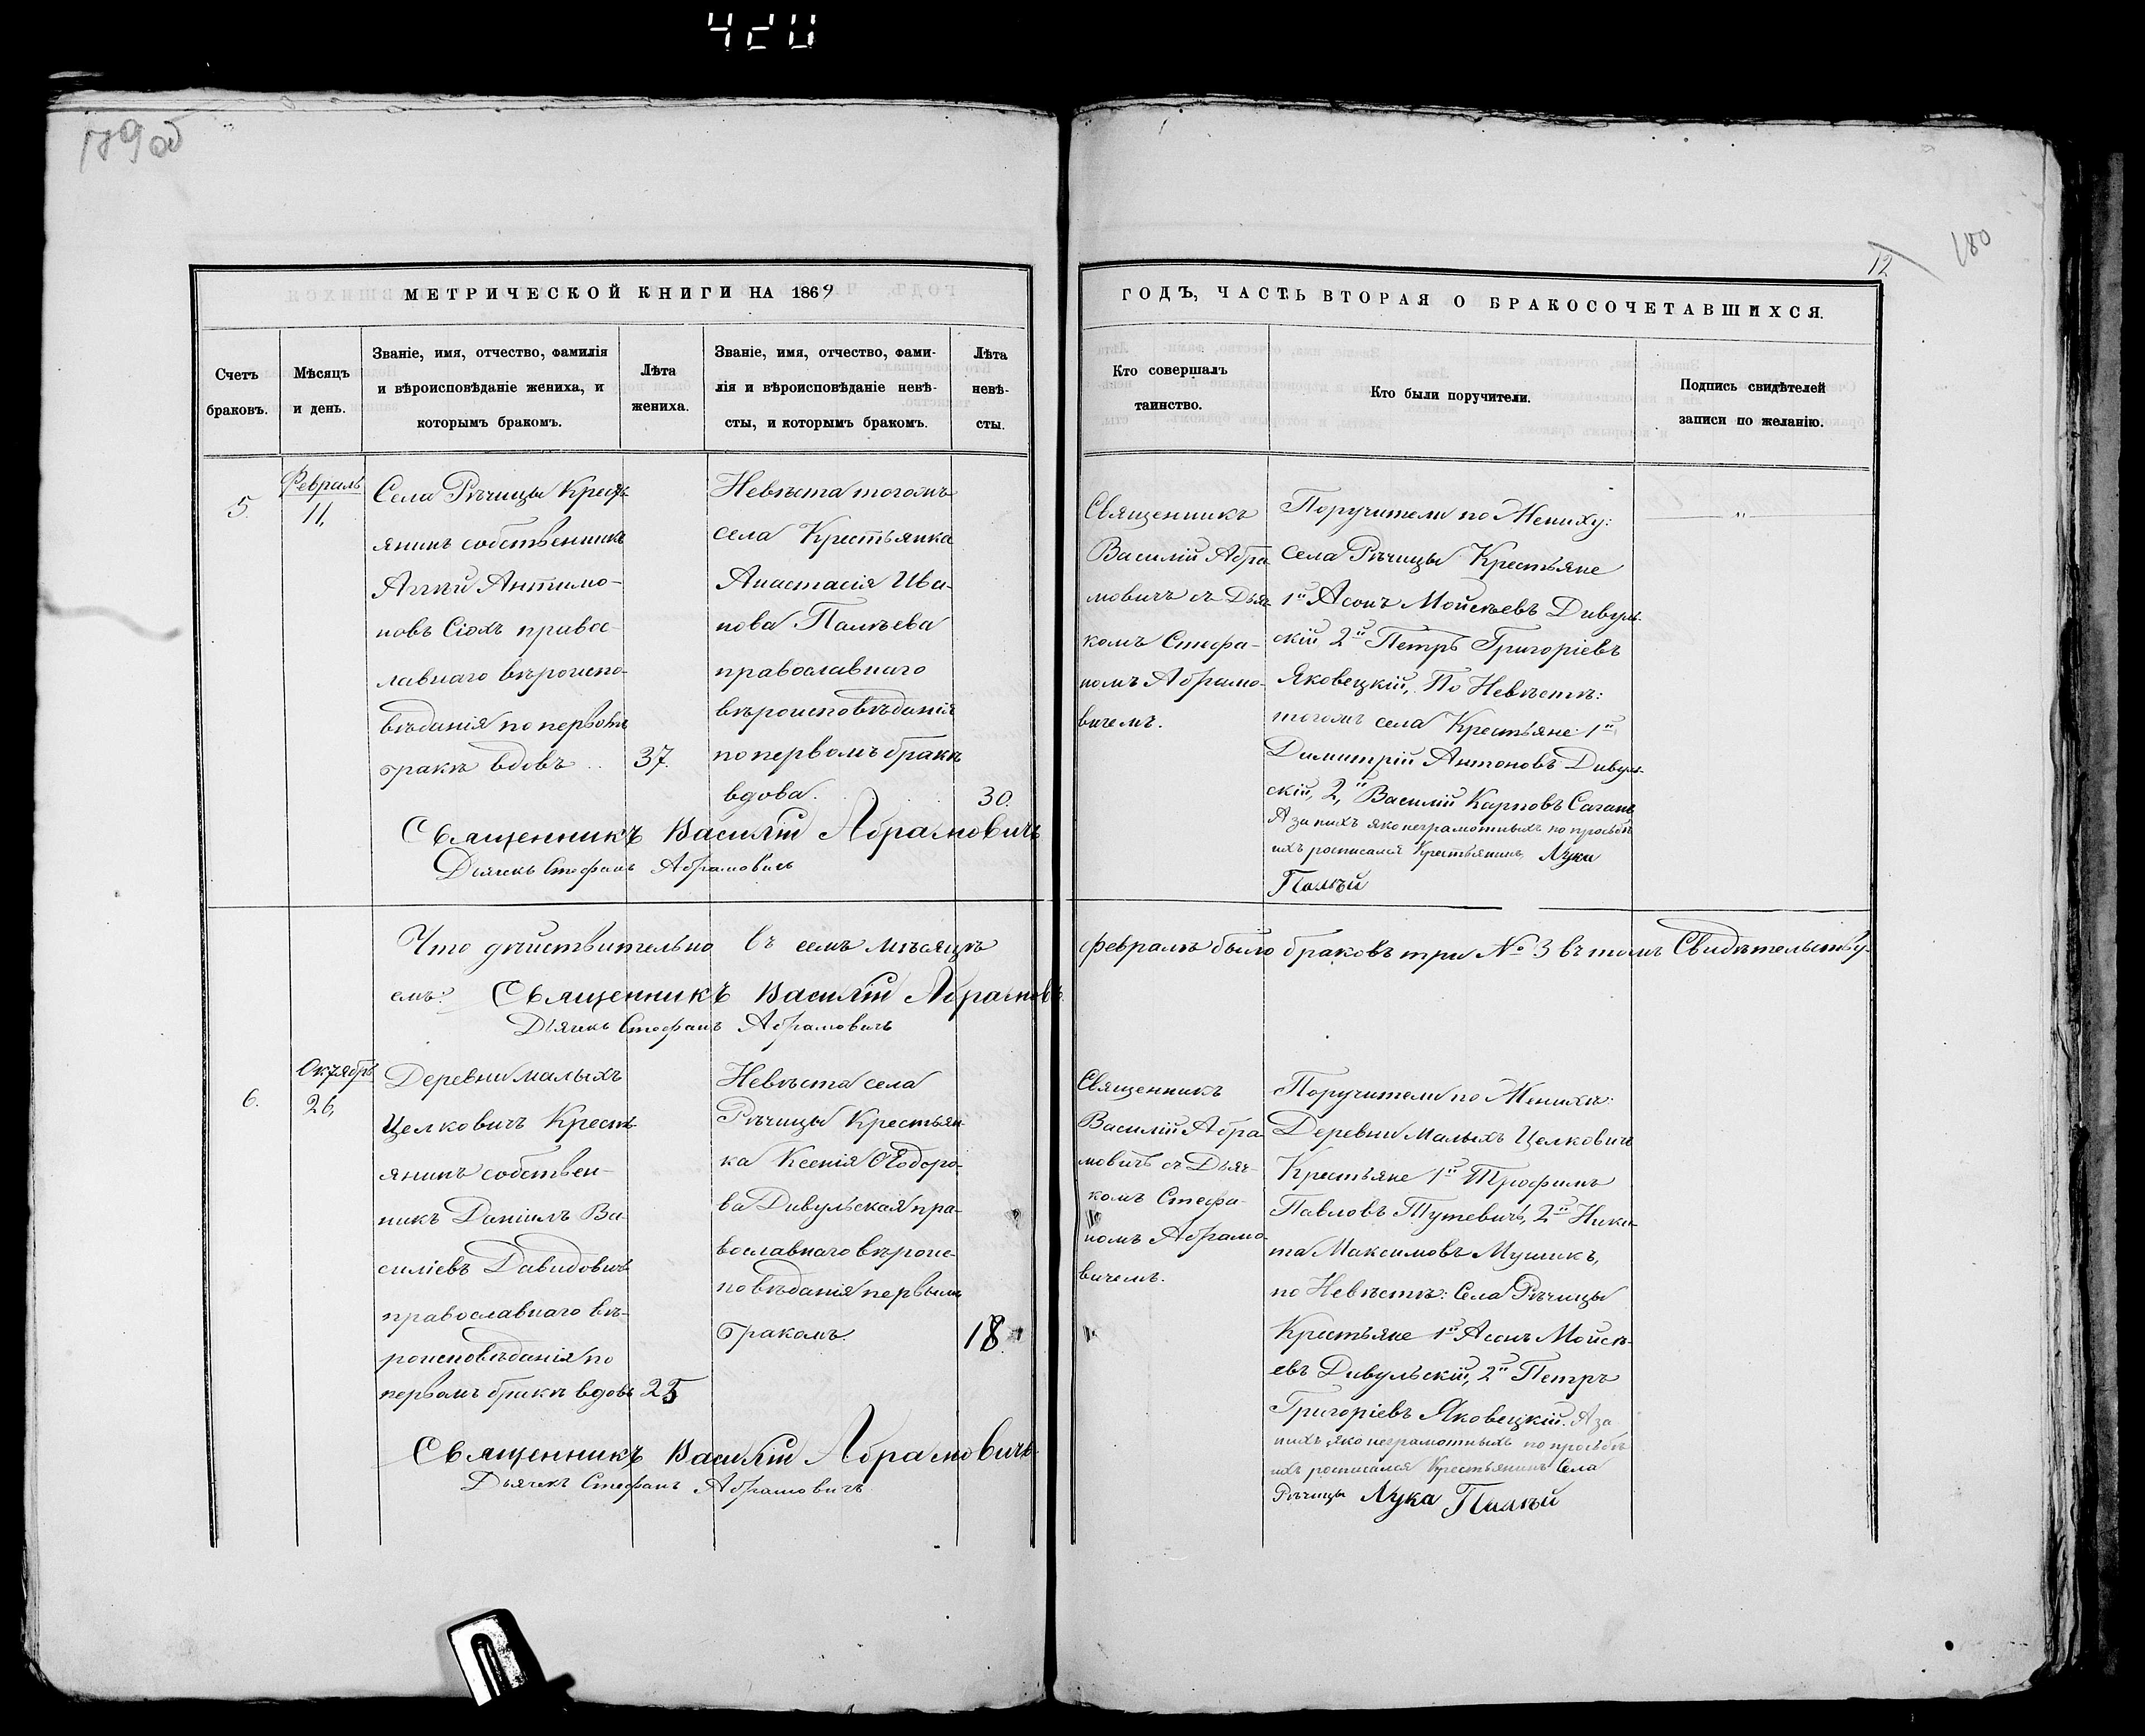 420
179 об
180
12
МЕТРИЧЕСКОЙ КНИГИ НА 1869
ГОДЪ, ЧАСТЬ ВТОРАЯ О БРАКОСОЧЕТАВШИХСЯ.
Счетъ
браковъ.
Мѣсяцъ
и день.
Званіе, имя, отчество, фамилія
и вѣроисповѣданіе жениха, и
которымъ бракомъ.
Лѣта
жениха.
Званіе, имя, отчество, фами-
лія и вѣроисповѣданіе невѣ-
сты, и которымъ бракомъ.
Лѣта
невѣ-
сты.
Кто совершалъ
таинство.
Кто были поручители.
Подпись свидѣтелей
записи по желанію.
5.
Февраль
11,
Села Рѣчицы Кресть
янинъ собственникъ
Антимо-
новъ Сіохъ правос-
лавнаго вѣроиспо-
вѣданія по первомъ
бракѣ вдовъ
37.
Невѣста тогожъ
села Крестьянка
Анастасія Ива-
нова Палѣева
православнаго
вѣроисповѣданія
по первомъ бракѣ
вдова.
30.
Священникъ Василій Абрамовичъ
Дьячекъ Стефанъ Абрамовичъ
Священникъ
Василій Абра
мовичъ съ Дьяч
комъ Стефа-
номъ Абрамо-
вичемъ.
Поручители по Жениху:
села Рѣчицы Крестьяне
1й Асонъ Мойсѣевъ Дивуль-
скій, 2й Петръ Григоріевъ
Яковецкій, По Невѣстѣ:
тогожъ села Крестьяне: 1й,
Димитрій Антоновъ Дивуль-
скій, 2,й Василій Карповъ Саганъ
А за нихъ яко неграмотныхъ по прозьбѣ
ихъ росписался Крестьянинъ Лука
Палѣй
Что дѣйствительно въ семъ мѣсяцѣ
февралѣ было браковъ три № 3 въ томъ Свидѣтельству-
емъ: Священникъ Василій Абрамовъ
Дьячекъ Стефанъ Абрамовичъ
6.
Октябрь
26,
Деревни малыхъ
Целковичъ Кресть
янинъ собствен-
никъ Даніилъ Ва-
силіевъ Давидовичъ
православнаго вѣ-
роисповѣданія по
первомъ бракѣ вдовъ
25
Невѣста села
Рѣчицы Крестьян-
ка Ксенія Ѳеодоро-
ва Дивульская пра-
вославнаго вѣроис-
повѣданія первымъ
бракомъ.
18.
Священникъ Василій Абрамовичъ
Дьячекъ Стефанъ Абрамовичъ
Священникъ
Василій Абра
мовичъ съ Дьяч-
комъ Стефа-
номъ Абрамо-
вичемъ.
Поручители по Женихѣ:
Деревни Малыхъ Целковичъ
Крестьяне 1й Трофимъ
Павловъ Тутевичъ, 2й Ники-
та Максимовъ Мушикъ,
по Невѣстѣ: Села Рѣчицы
Крестьяне 1й Асонъ Мойсѣ-
евъ Дивульскій, 2й Петръ
Григоріевъ Яковецкій. А за
нихъ яко неграмотныхъ по прозьбѣ
ихъ росписался Крестьянинъ Села
Рѣчицы Лука Палѣй